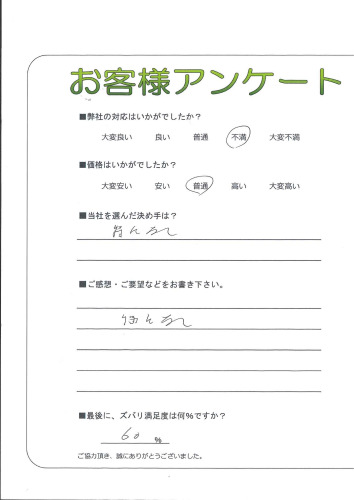 お客様アンケート
■弊社の対応はいかがでしたか？
大変良い 良い 普通 不満 大変不満
■価格はいかがでしたか？
大変安い 安い 普通 高い 大変高い
■当社を選んだ決め手は？
特になし
■ご感想・ご要望などをお書き下さい。
特になし
■最後に、ズバリ満足度は何%ですか？
60 %
ご協力頂き、誠にありがとうございました。